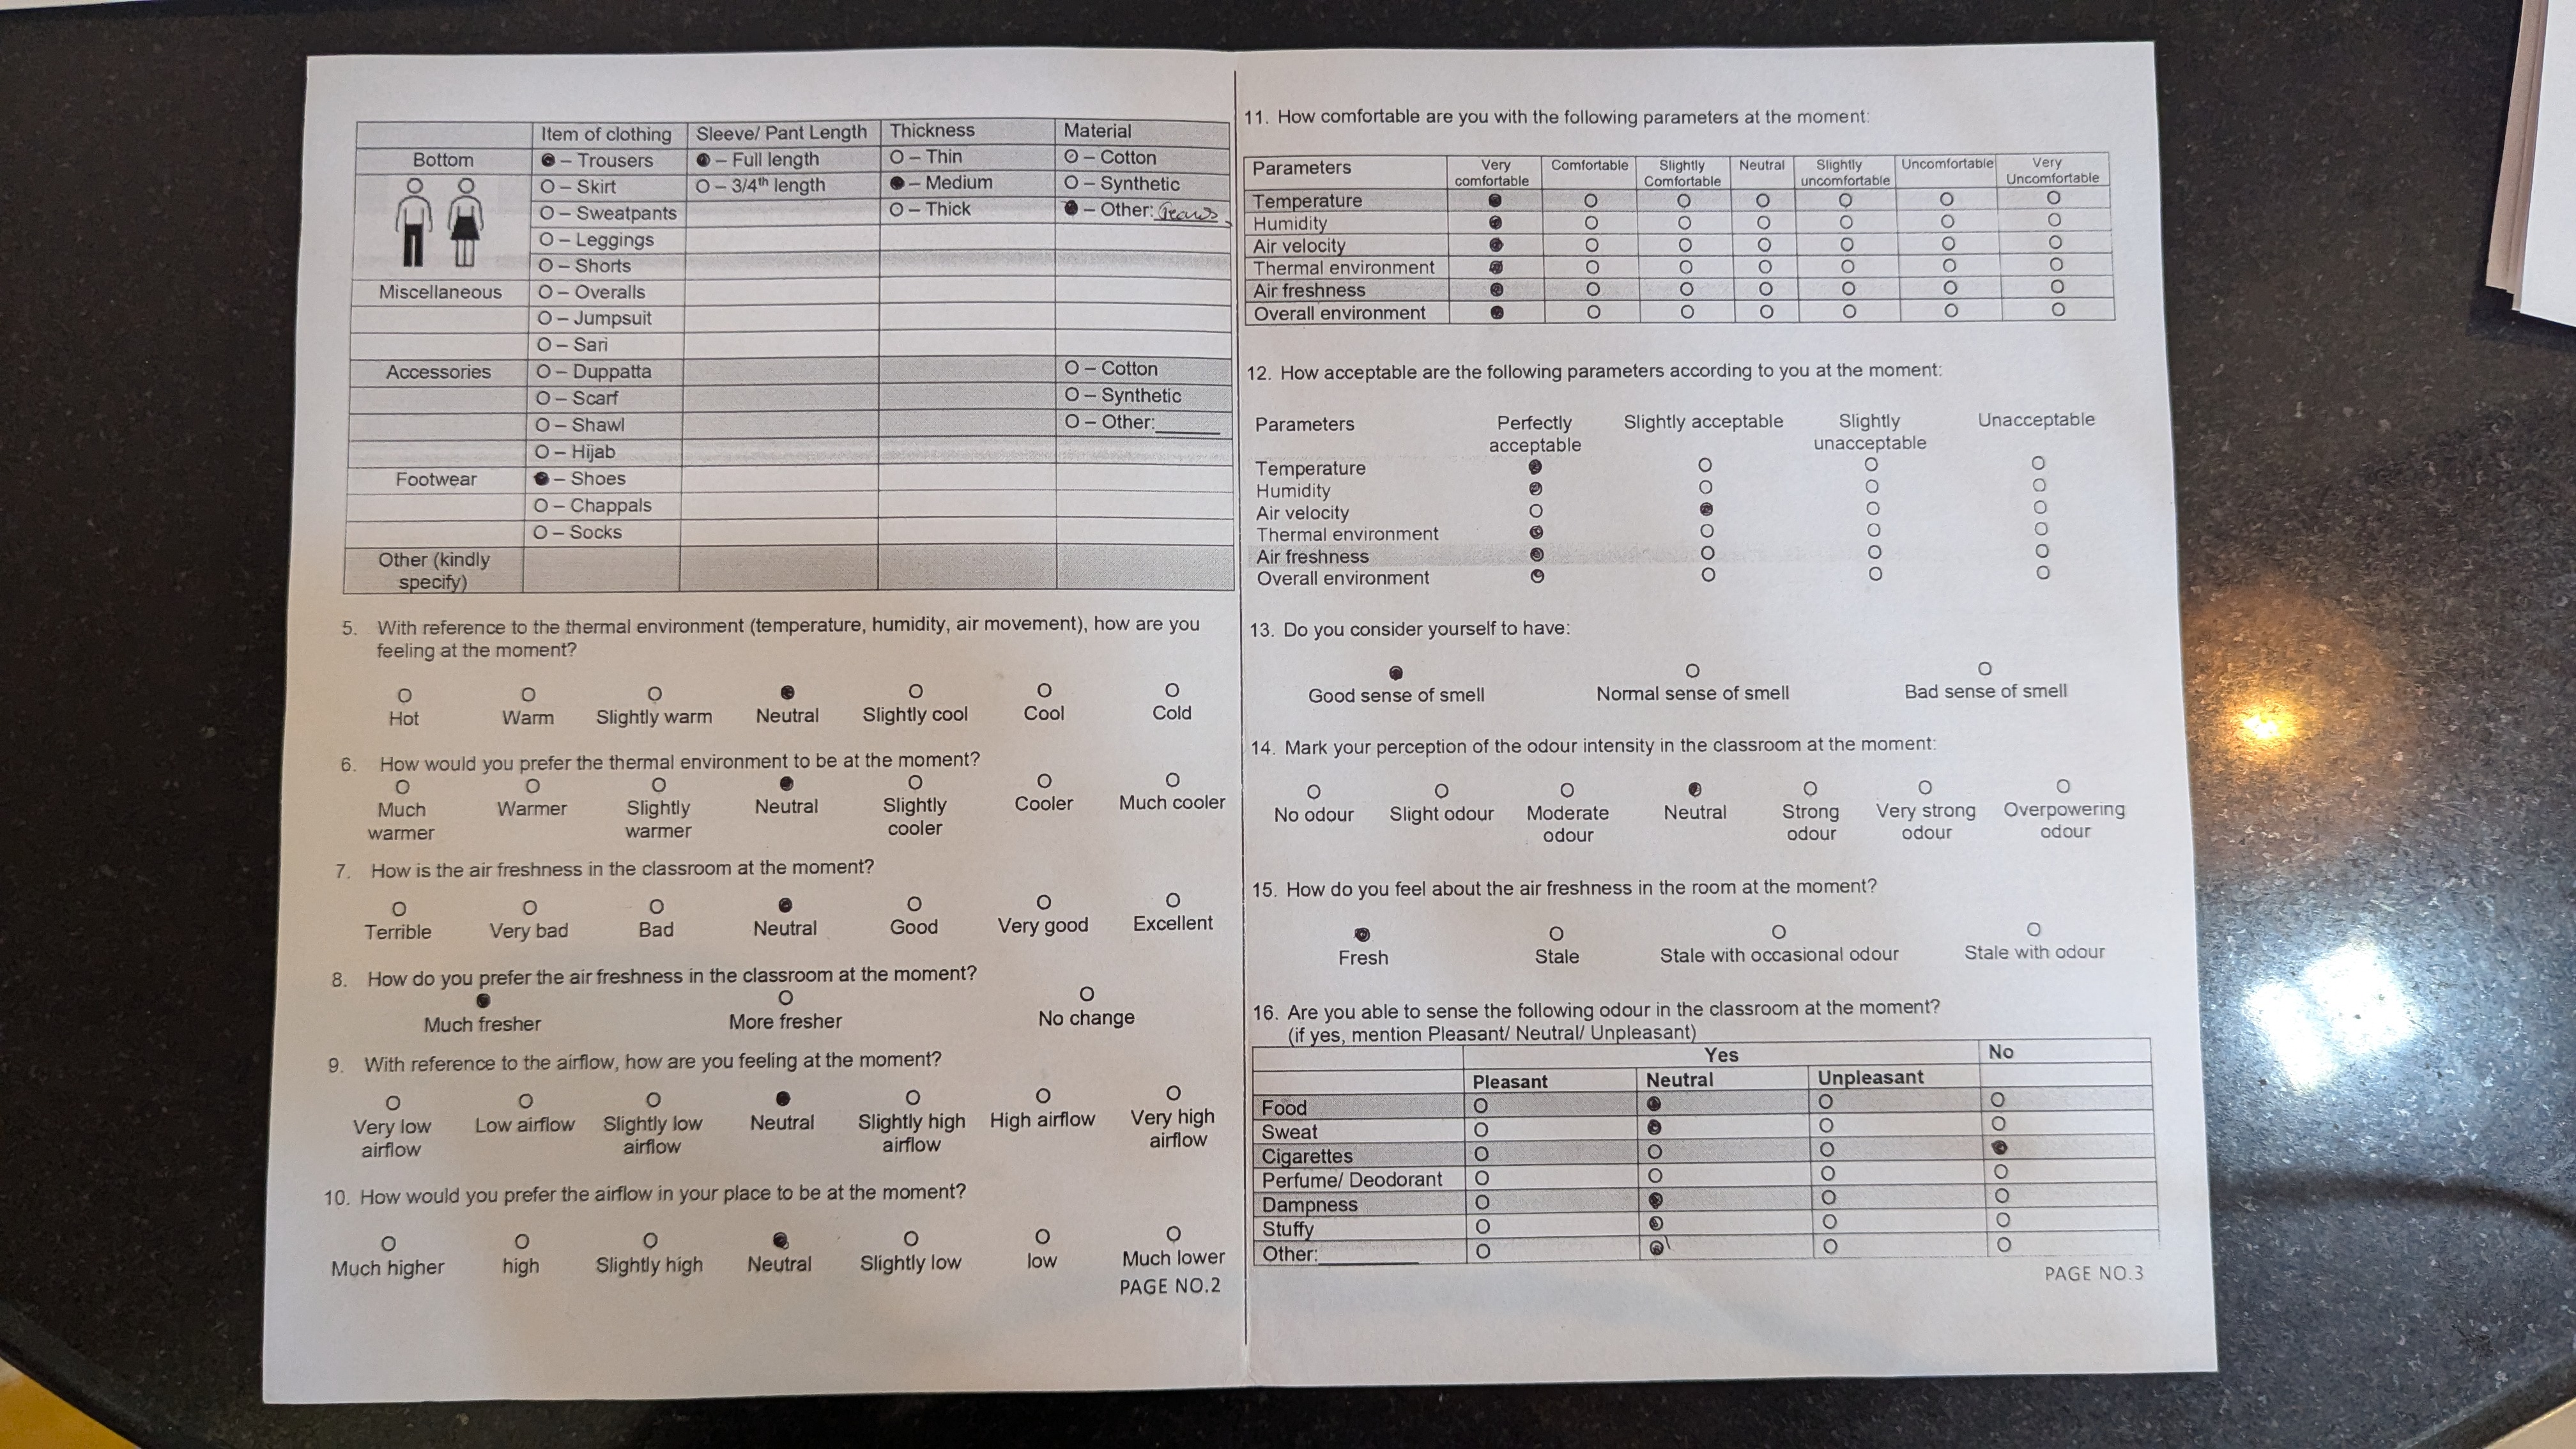 Item of clothing Sleeve/ Pant Length Thickness Material
Bottom – Trousers – Full length – Thin – Cotton
– Skirt – 3/4th length – Medium – Synthetic
– Sweatpants – Thick – Other:
– Leggings
– Shorts
Miscellaneous – Overalls
– Jumpsuit
– Sari
Accessories – Duppatta – Cotton
– Scarf – Synthetic
– Shawl – Other:______
– Hijab
Footwear – Shoes
– Chappals
– Socks
Other (kindly
specify)
5. With reference to the thermal environment (temperature, humidity, air movement), how are you
feeling at the moment?
Hot Warm Slightly warm Neutral Slightly cool Cool Cold
6. How would you prefer the thermal environment to be at the moment?
Much Warmer Slightly Neutral Slightly Cooler Much cooler
warmer warmer cooler
7. How is the air freshness in the classroom at the moment?
Terrible Very bad Bad Neutral Good Very good Excellent
8. How do you prefer the air freshness in the classroom at the moment?
Much fresher More fresher No change
9. With reference to the airflow, how are you feeling at the moment?
Very low Low airflow Slightly low Neutral Slightly high High airflow Very high
airflow airflow airflow airflow
10. How would you prefer the airflow in your place to be at the moment?
Much higher high Slightly high Neutral Slightly low low Much lower
PAGE NO.2
11. How comfortable are you with the following parameters at the moment:
Parameters Very Comfortable Slightly Neutral Slightly Uncomfortable Very
comfortable Comfortable uncomfortable Uncomfortable
Temperature
Humidity
Air velocity
Thermal environment
Air freshness
Overall environment
12. How acceptable are the following parameters according to you at the moment:
Parameters Perfectly Slightly acceptable Slightly Unacceptable
acceptable unacceptable
Temperature
Humidity
Air velocity
Thermal environment
Air freshness
Overall environment
13. Do you consider yourself to have:
Good sense of smell Normal sense of smell Bad sense of smell
14. Mark your perception of the odour intensity in the classroom at the moment:
No odour Slight odour Moderate Neutral Strong Very strong Overpowering
odour odour odour odour
15. How do you feel about the air freshness in the room at the moment?
Fresh Stale Stale with occasional odour Stale with odour
16. Are you able to sense the following odour in the classroom at the moment?
(if yes, mention Pleasant/ Neutral/ Unpleasant)
Yes No
Pleasant Neutral Unpleasant
Food
Sweat
Cigarettes
Perfume/ Deodorant
Dampness
Stuffy
Other:_________
PAGE NO.3